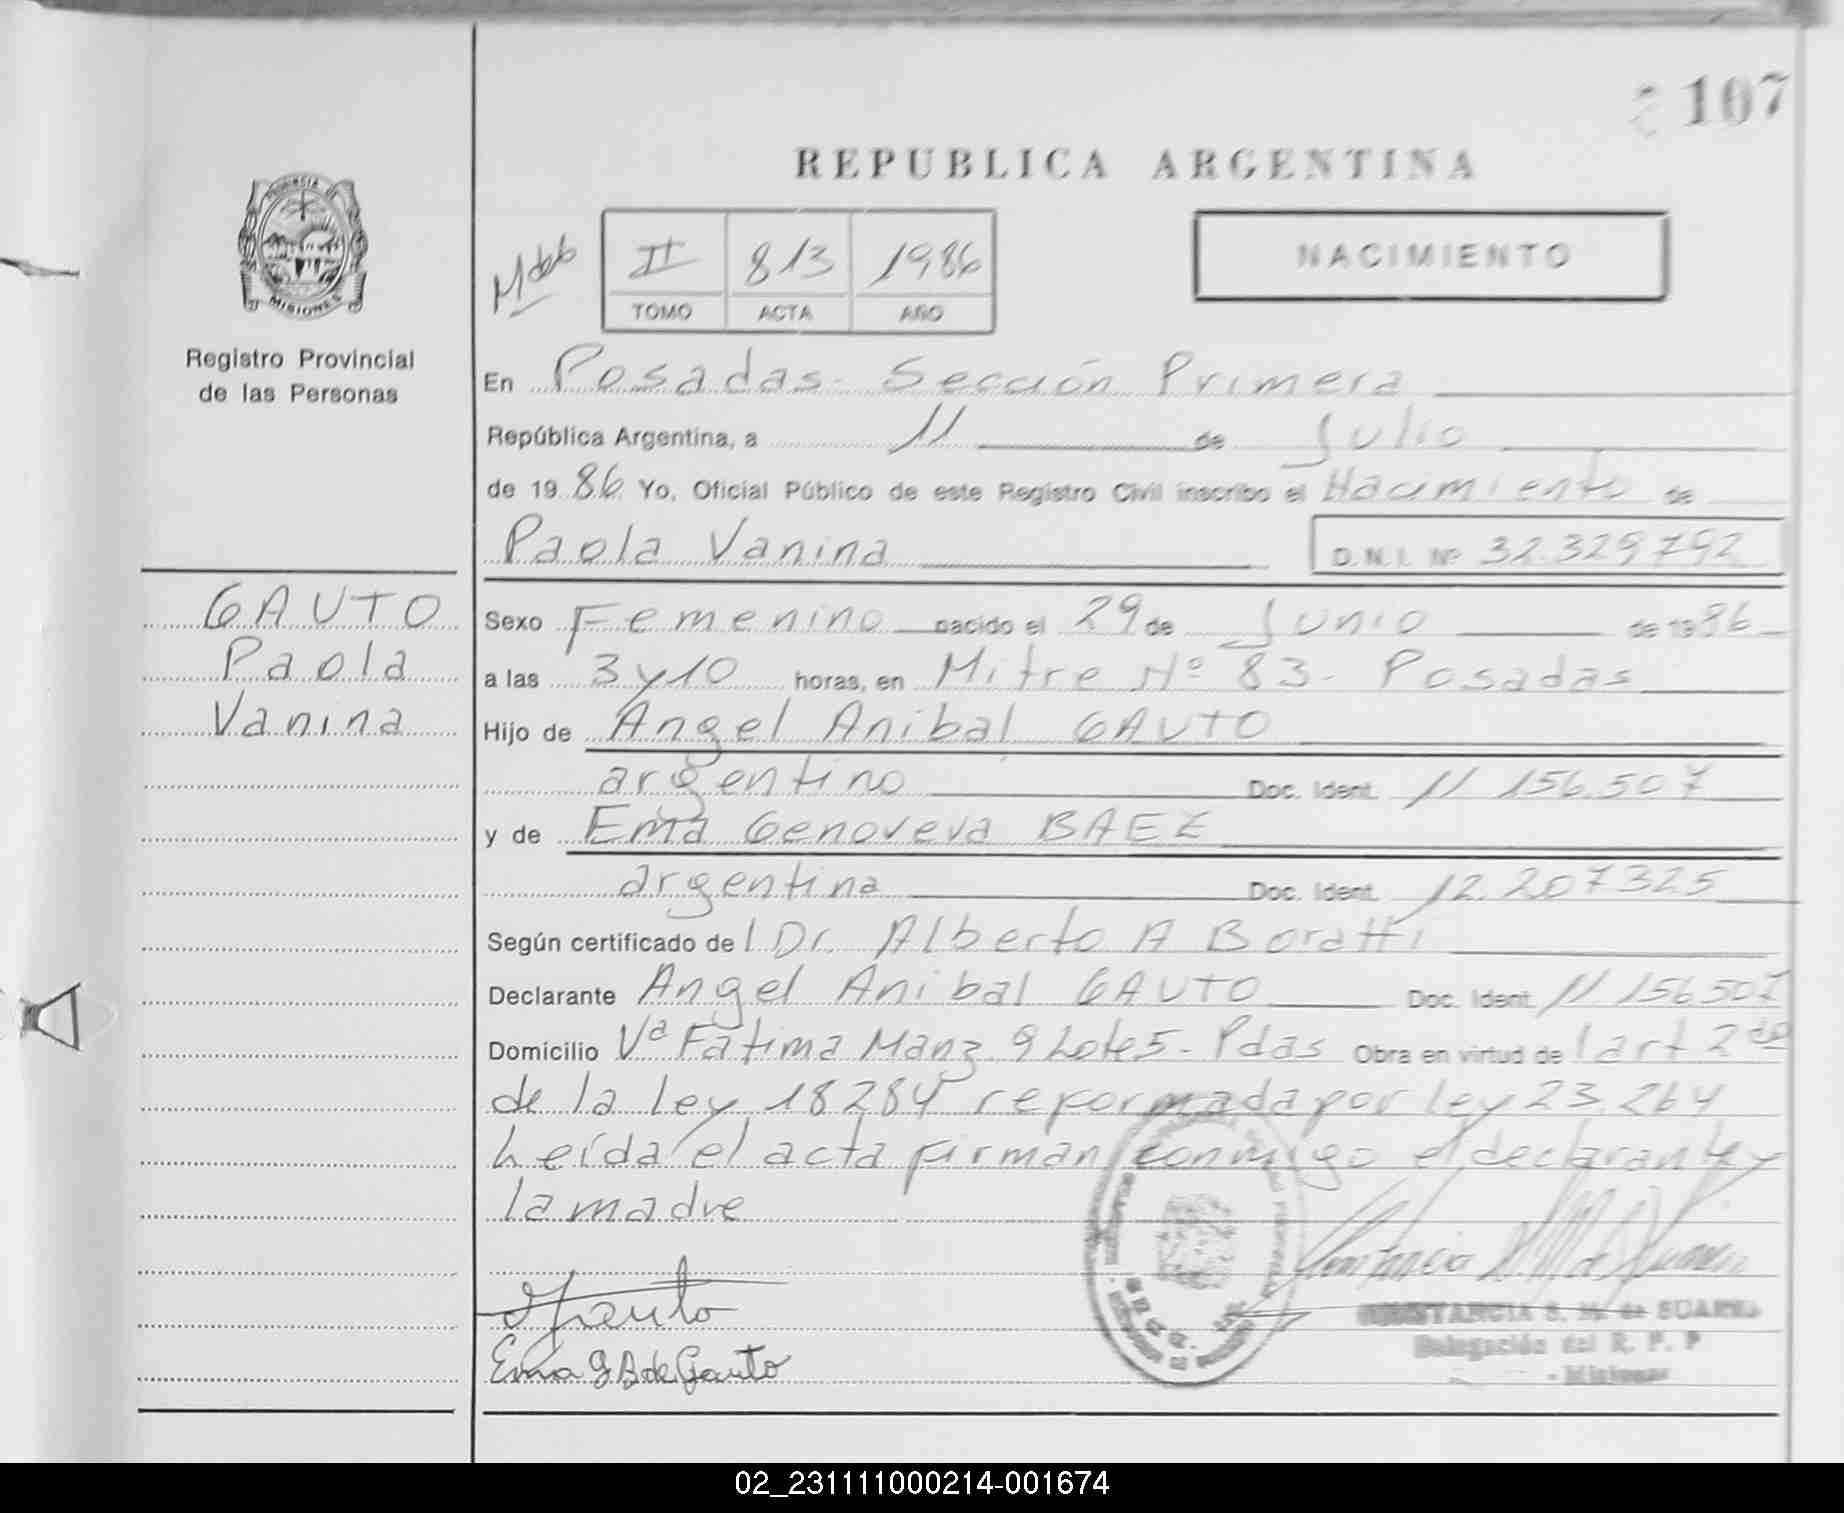 107
REPUBLICA ARGENTINA
PROVINCIA DE
MISIONES
Registro Provincial
de las Personas
II 813 1986
TOMO ACTA AÑO
NACIMIENTO
En Posadas- Sección Primera
República Argentina, a 11 de Julio
de 1986 Yo, Oficial Público de este Registro Civil inscribo el Nacimiento de
Paola Vanina D.N.I. Nº 32.329792
GAUTO
Paola
Vanina
Sexo Femenino nacido el 29 de Junio de 1986
a las 3 y 10 horas, en Mitre Nº 83- Posadas
Hijo de Angel Anibal GAUTO
argentino Doc. Ident. 11 156.507
y de Ema Genoveva BAEZ
argentina Doc. Ident. 12.207325
Según certificado de l Dr. Alberto A Boratti
Declarante Angel Anibal GAUTO Doc. Ident. 11.156507
Domicilio Vª Fatima Manz 9 Lote 5- Pdas Obra en virtud de l art 2do
de la ley 18284 reformada por ley 23.264
Leída el acta firman conmigo el declarante y
la madre
Gauto
Ema G B de Gauto
CONSTANCIA S. M. de SUAREZ
Delegación del R. P. P
Misiones
02_231111000214-001674